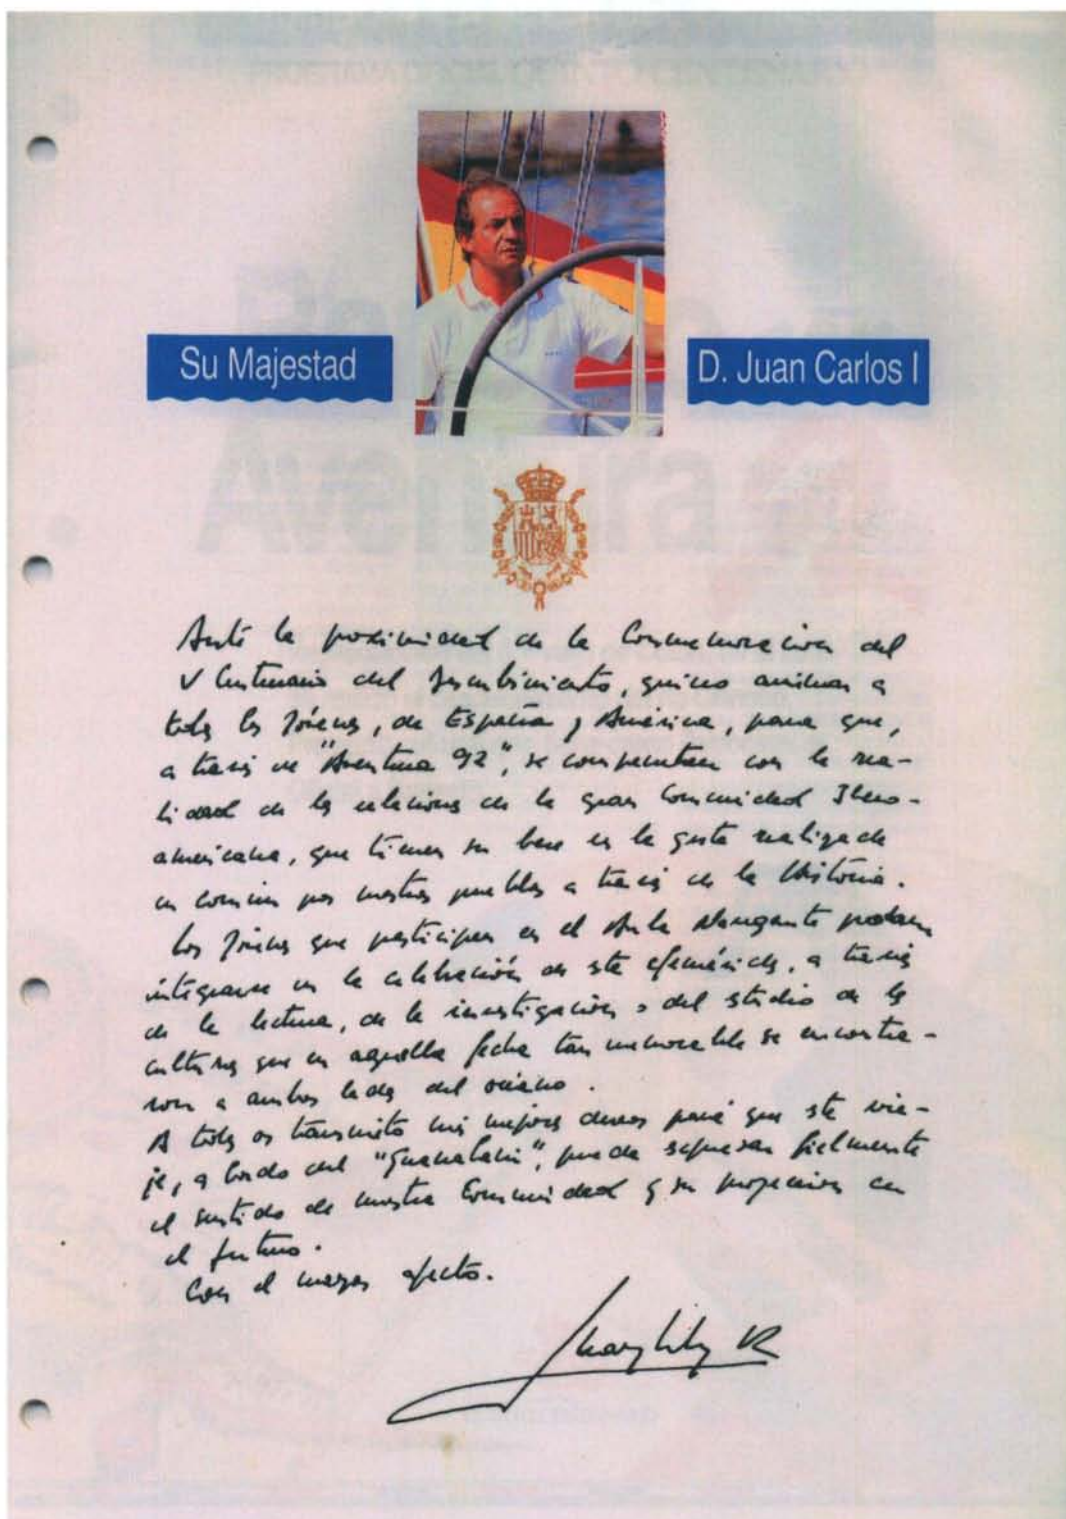 Su Majestad
D. Juan Carlos I
Ante la proximidad de la Conmemoración del
V Centenario del Descubrimiento, quiero animar a
todos los Jóvenes, de España y América, para que,
a través de "Aventura 92", se compenetren con la rea-
lidad de las relaciones de la gran Comunidad Ibero-
americana, que tienen su base en la gesta realizada
en común por nuestros pueblos a través de la Historia.
Los Jóvenes que participen en el Aula Navegante podrán
integrarse en la celebración de esta efemérides, a través
de la lectura, de la investigación o del estudio de las
culturas que en aquella fecha tan memorable se encontra-
ron a ambos lados del océano.
A todos os transmito mis mejores deseos para que este via-
je, a bordo del "Guanahani", pueda expresar fielmente
el sentido de nuestra Comunidad y su proyección en
el futuro.
Con el mayor afecto.
Juan Carlos R